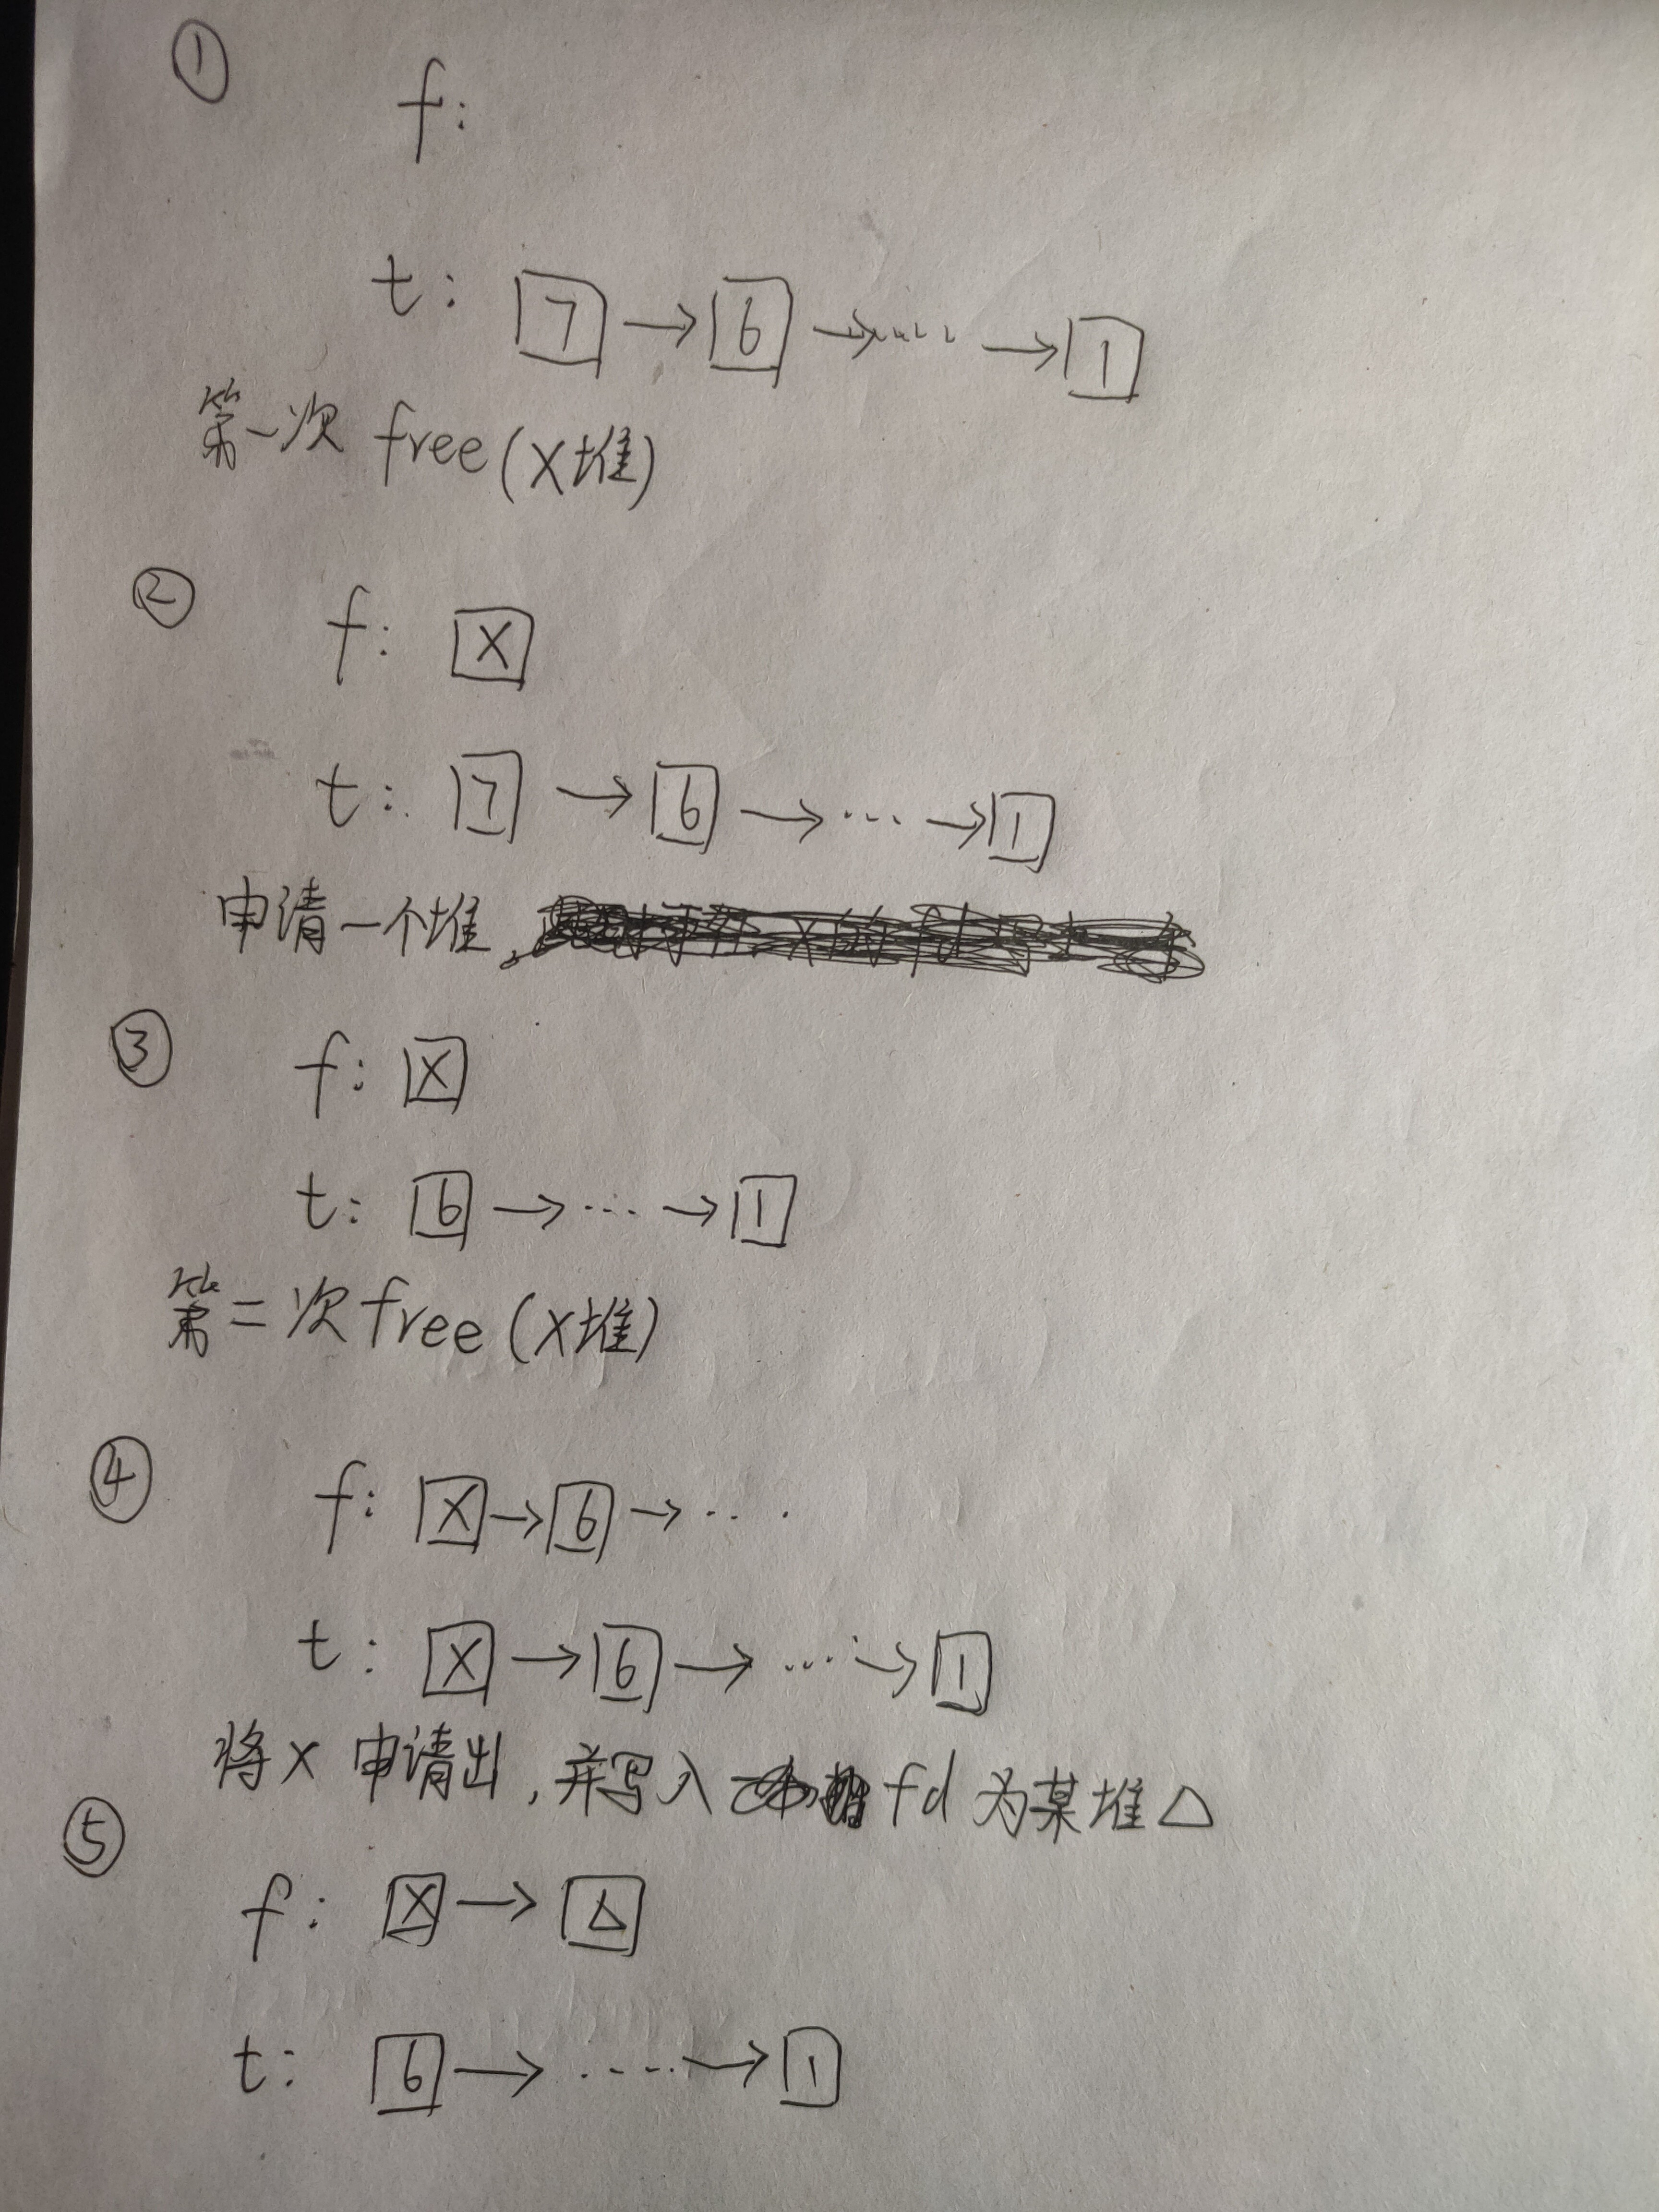 ①
f:
t: 7 → 6 → ····· → 1
第一次 free(X堆)
②
f: X
t: 7 → 6 → ··· → 1
申请一个堆,
③
f: X
t: 6 → ··· → 1
第二次free(X堆)
④
f: X → 6 → ···
t: X → 6 → ··· → 1
将X申请出,并写入fd为某堆△
⑤
f: X → △
t: 6 → ····· → 1